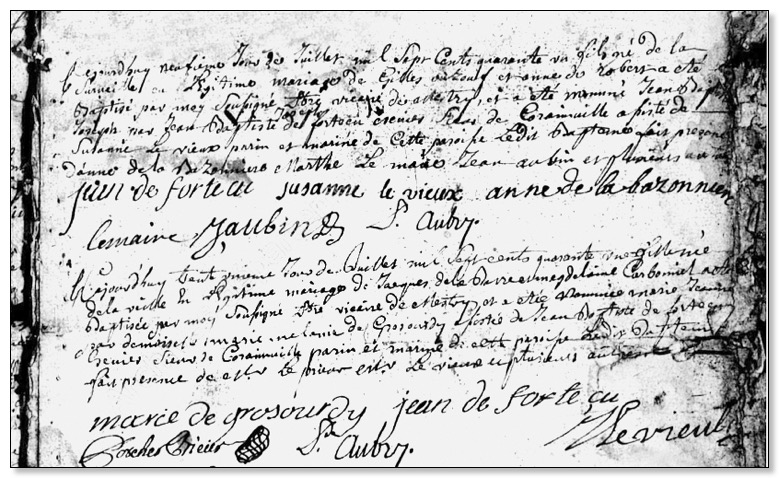 Cejourdhuy neufieme Jour de Juillet mil Sept Cents quarante un filz né de la
Surveille en Legitime mariage de Gilles ouzouf et anne de robert a eté
Baptisé par moy Soussigné Pbre vicaire de Mestry, et a eté nommé Jean Bapt
Joseph par Jean Baptiste de forteau Ecuier Sieur de Corainville assisté de
Susanne Le vieux parin et marine de Cette paroisse Ledit Bapteme fait presence
danne de la Bazonniere Marthe Le maire Jean aubin et plusieurs
jean de forteau susanne le vieux anne de la bazonniere
lemaire Jaubin St. Aubry.
Cejourdhuy Jour de Juillet mil Sept cents quarante une fille née
de la veille En Legitime mariage de Jacques de la Barre et magdelaine Carbonnel a eté
Baptisée par moy Soussigné Pbre vicaire de Mestry et a eté nommée marie Jeanne
par demoiselle marie melanie de Grosourdy assistée de Jean Baptiste de forteau
Ecuier Sieur de Corainville parin et marine de cette paroisse Ledit Bapteme
fait presence de Mr Le prieur Mr Le vieux et plusieurs autres
marie de grosourdy jean de forteau
Prieur St. Aubry. Levieux